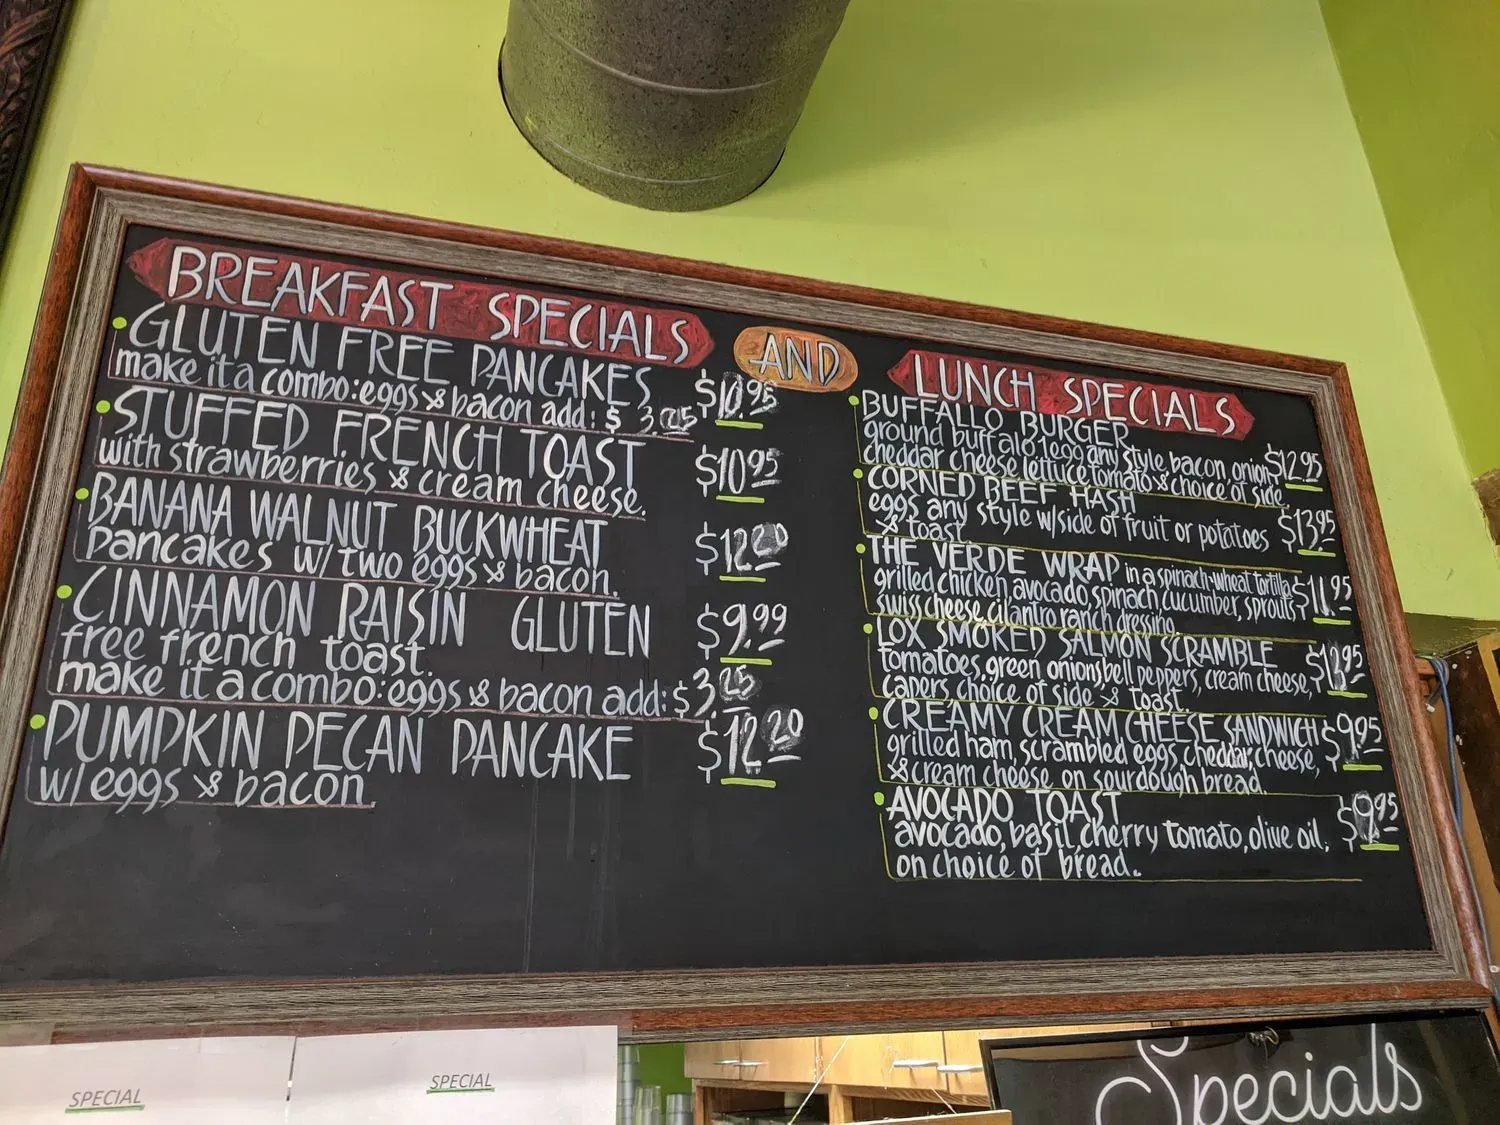 BREAKFAST SPECIALS
GLUTEN FREE PANCAKES $10.95
make it a combo: eggs & bacon add: $ 3.25
STUFFED FRENCH TOAST $10.95
with strawberries & cream cheese.
BANANA WALNUT BUCKWHEAT $12.20
pancakes w/ two eggs & bacon.
CINNAMON RAISIN GLUTEN $9.99
free french toast.
make it a combo: eggs & bacon add: $3.25
PUMPKIN PECAN PANCAKE $12.20
w/ eggs & bacon.
AND
LUNCH SPECIALS
BUFFALLO BURGER
ground buffalo, 1 egg any style bacon, onion, $12.95
cheddar cheese lettuce tomato & choice of side.
CORNED BEEF HASH
eggs any style w/side of fruit or potatoes $13.95
& toast.
THE VERDE WRAP in a spinach-wheat tortilla
grilled chicken, avocado, spinach, cucumber, sprouts $11.95
swiss cheese, cilantro ranch dressing.
LOX SMOKED SALMON SCRAMBLE
tomatoes, green onions, bell peppers, cream cheese, $13.95
capers choice of side & toast.
CREAMY CREAM CHEESE SANDWICH $9.95
grilled ham, scrambled eggs, cheddar, cheese,
& cream cheese, on sourdough bread.
AVOCADO TOAST $9.95
avocado, basil, cherry tomato, olive oil,
on choice of bread.
SPECIAL
SPECIAL
Specials